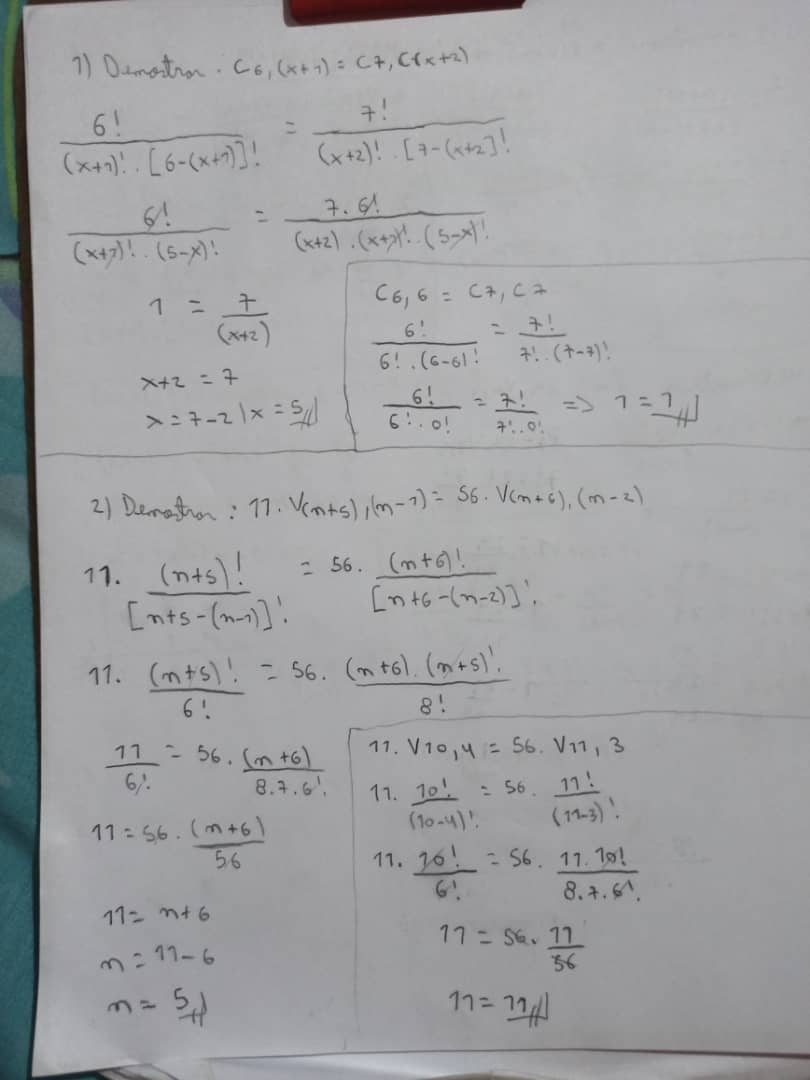 1) Demostrar. C6,(x+1) = C7,C(x+2)
6! / (x+1)! . [6-(x+1)]! = 7! / (x+2)! . [7-(x+2]!
6! / (x+1)! . (5-x)! = 7.6! / (x+2).(x+1)!.(5-x)!
1 = 7 / (x+2)
x+2 = 7
x = 7-2 | x = 5
C6,6 = C7,C7
6! / 6!.(6-6)! = 7! / 7!.(7-7)!
6! / 6!.0! = 7! / 7!.0! => 1 = 1
2) Demostrar : 11. V(n+5),(n-1) = 56. V(n+6),(n-2)
11. (n+5)! / [n+5-(n-1)]! = 56. (n+6)! / [n+6-(n-2)]!
11. (n+5)! / 6! = 56. (n+6).(n+5)! / 8!
11 / 6! = 56. (n+6) / 8.7.6!
11 = 56. (n+6) / 56
11 = n+6
n = 11-6
n = 5
11. V10,4 = 56. V11,3
11. 10! / (10-4)! = 56. 11! / (11-3)!
11. 10! / 6! = 56. 11.10! / 8.7.6!
11 = 56. 11 / 56
11 = 11